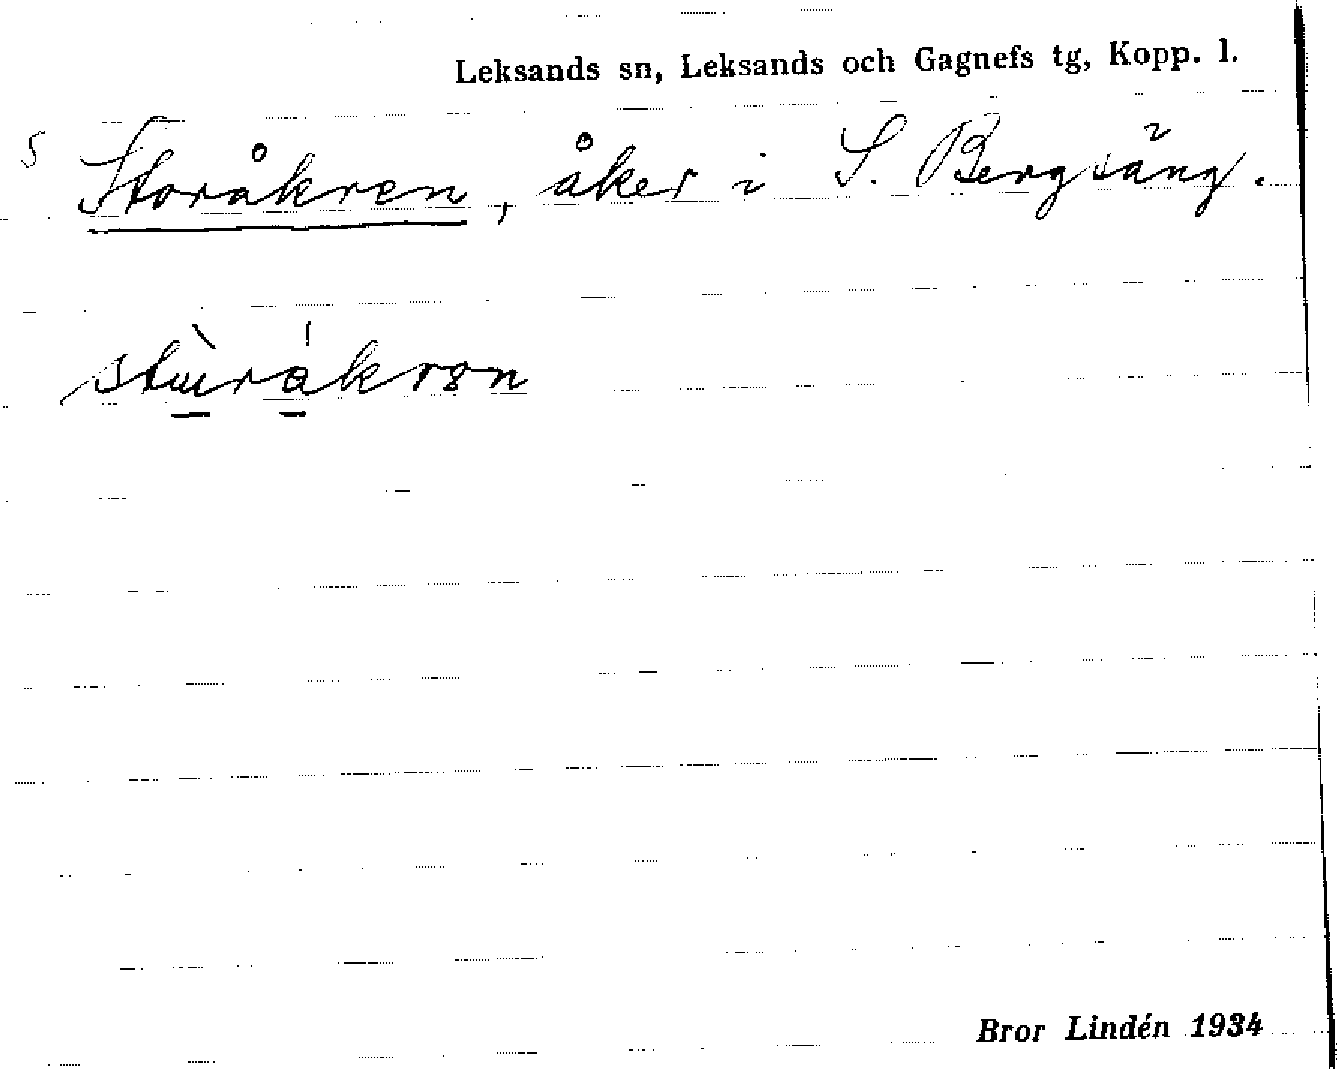 Leksands sn, Leksands och Gagnefs tg, Kopp. l.
S Storåkren, åker i S. Bergsäng.
Bror Lindén 1934